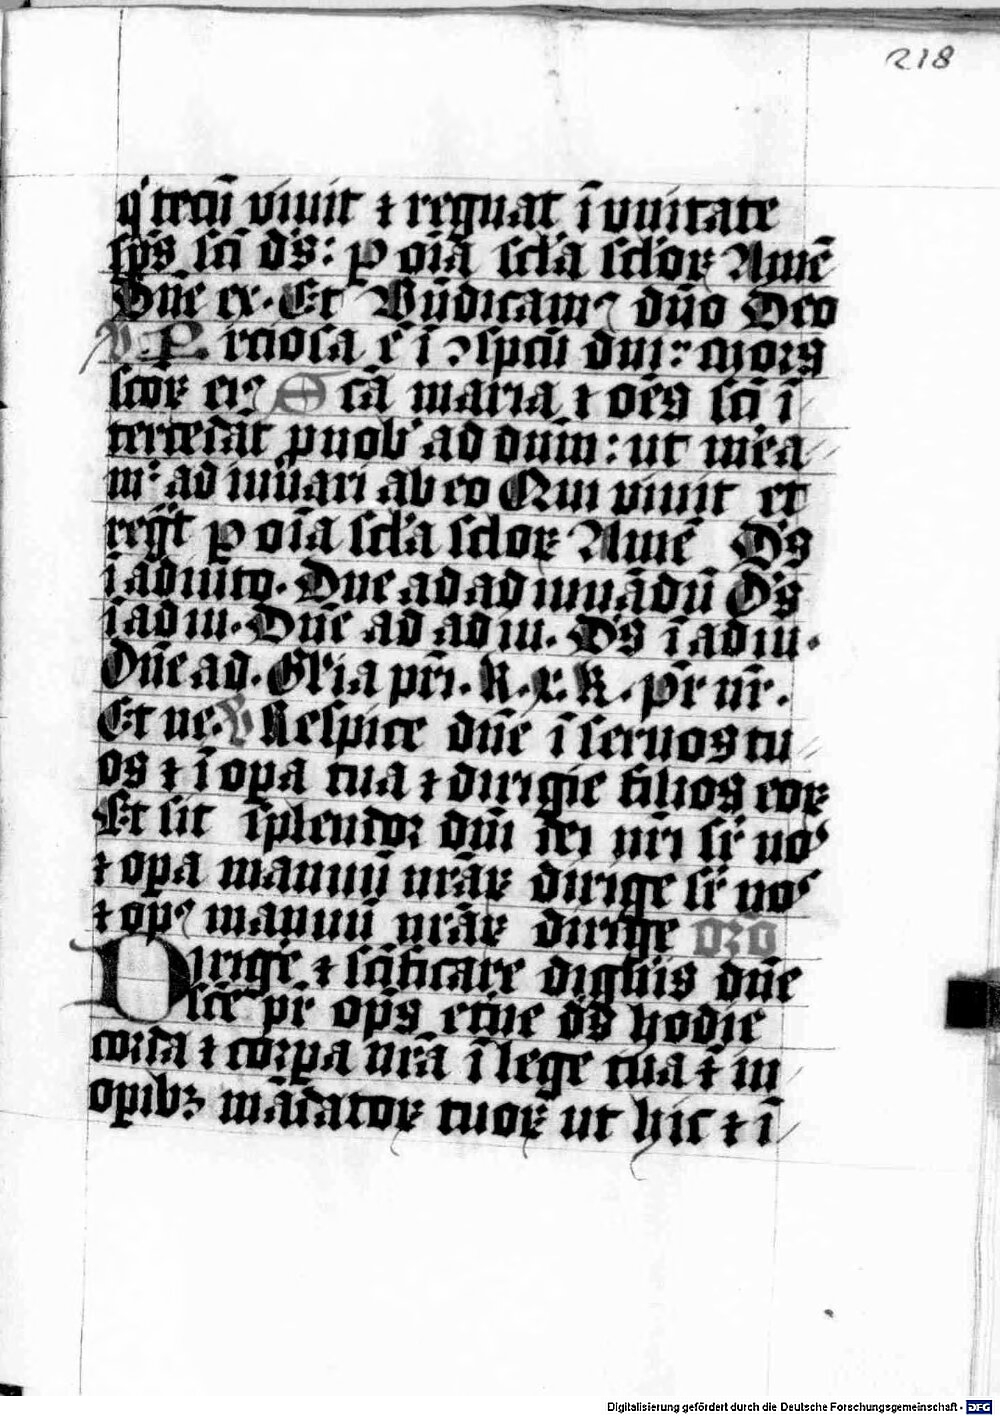 218
q̇ tecū viuit ⁊ regnat ī vnitate
sp̄s sc̄i ds̄: ꝑ oīa sc̄la sc̄loꝝ Amē
Dn̄e ex. Et Bn̄dicam⁹ dn̄o Deo
V. P reciosa ē ī ɔspc̄u dn̄i: mors
sc̄oꝝ ei⁹ S cā maria ⁊ oēs sc̄i ī
tercedāt ꝓ nob̄ ad dn̄m: ut mea
m̄ ad iuuari ab eo Qui viuit et
regt̄ ꝑ oīa sc̄la sc̄loꝝ Amē Ds̄
ī adiuto. Dn̄e ad ad iuuādū Ds̄
ī ad iu. Dn̄e ad ad iu. Ds̄ ī ad iu.
Dn̄e ad. Gl̄ia pr̄i. K. x. K. pr̄ nr̄.
Et ne. V Respice dn̄e ī seruos tu
os ⁊ ī oꝑa tua ⁊ dirige filios eoꝝ
Et sit splendor dn̄i dei nr̄i sr̄ nos
⁊ oꝑa manuū nr̄aꝝ dirige sr̄ nos
⁊ op⁹ manuū nr̄aꝝ dirige oro
Dirige ⁊ sc̄ificare diḡis dn̄e
sc̄e pr̄ op̄s et̄ne ds̄ hodie
corda ⁊ corꝑa nr̄a ī lege tua ⁊ in
oꝑibꝫ mādatoꝝ tuoꝝ ut hic ⁊ ī
Digitalisierung gefördert durch die Deutsche Forschungsgemeinschaft - DFG